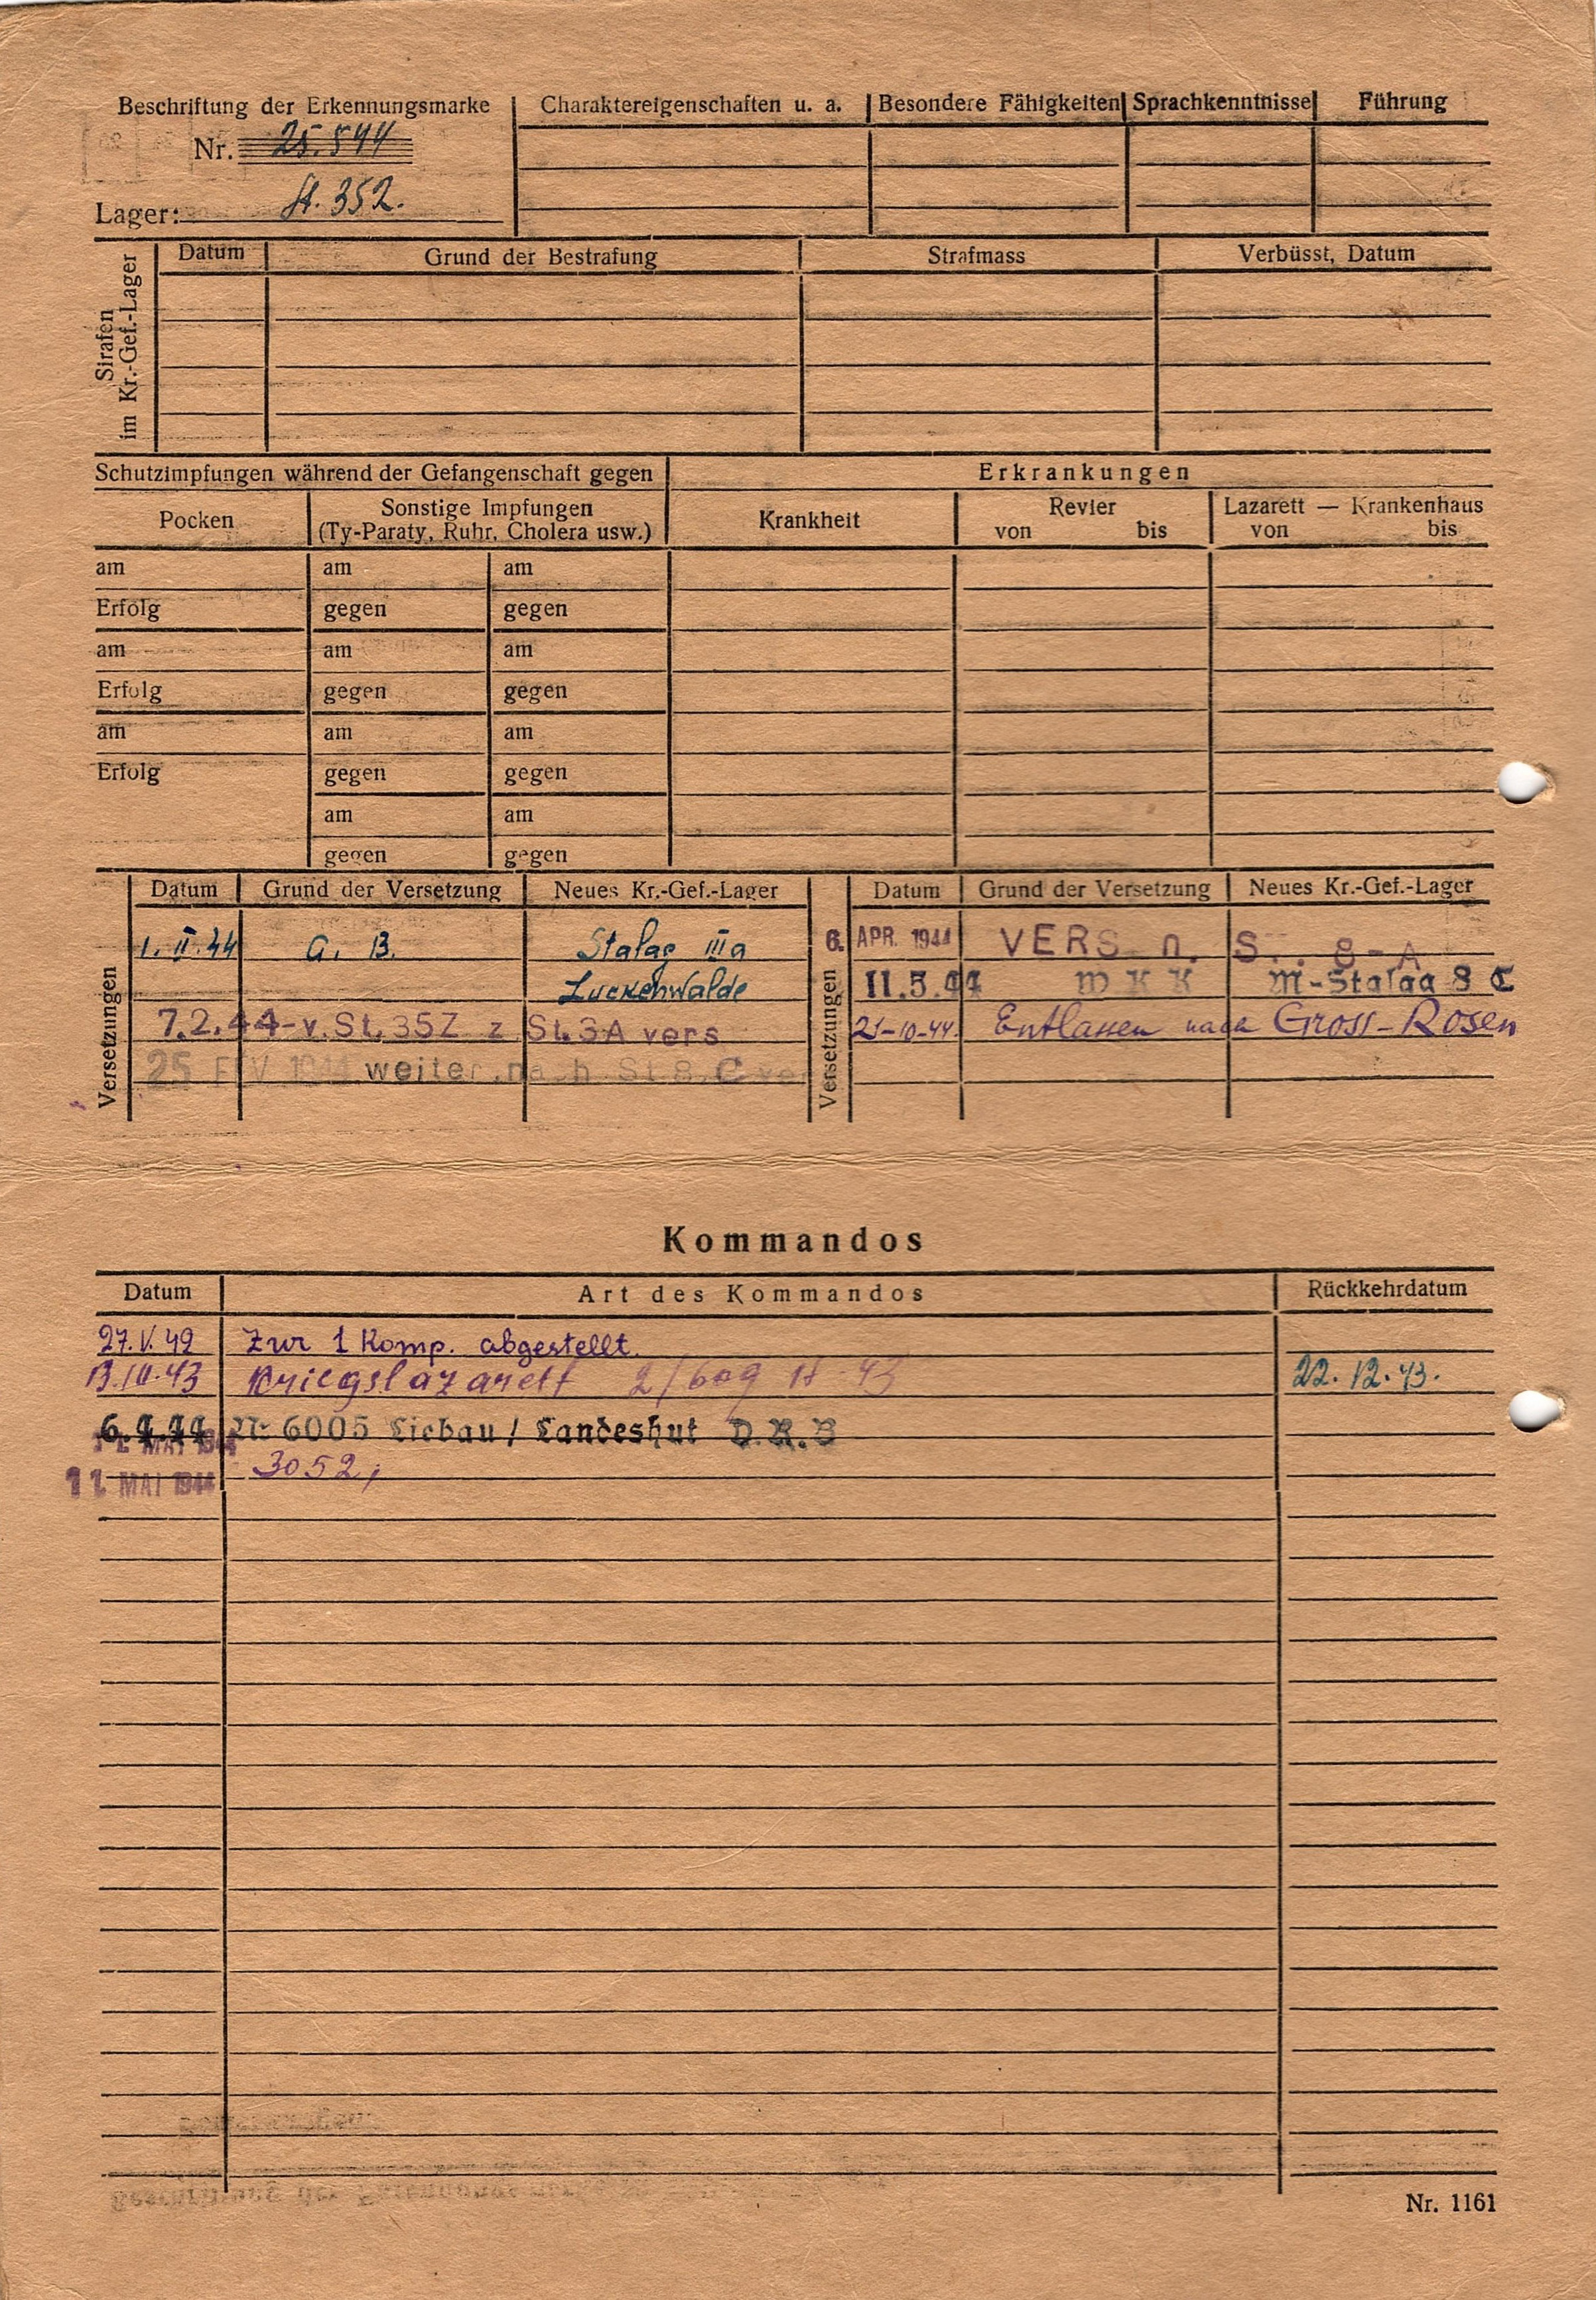 Beschriftung der Erkennungsmarke
Nr. 25.544
Lager: St. 352.
Charaktereigenschaften u. a.
Besondere Fähigkeiten
Sprachkenntnisse
Führung
Strafen
im Kr.-Gef.-Lager
Datum
Grund der Bestrafung
Strafmass
Verbüsst, Datum
Schutzimpfungen während der Gefangenschaft gegen
Erkrankungen
Pocken
Sonstige Impfungen
(Ty-Paraty, Ruhr, Cholera usw.)
Krankheit
Revier
von bis
Lazarett — Krankenhaus
von bis
am am am
Erfolg gegen gegen
am am am
Erfolg gegen gegen
am am am
Erfolg gegen gegen
am am
gegen gegen
Versetzungen
Datum Grund der Versetzung Neues Kr.-Gef.-Lager
1. II. 44 a. B. Stalag IIIa
Luckenwalde
7.2.44-v.St.35Z z St.3A vers
25 FEV 1944 weiter nach St 8. C
Versetzungen
Datum Grund der Versetzung Neues Kr.-Gef.-Lager
6. APR. 1944 VERS n. S 8-A
11.5.44 W K K M-Stalag 8 C
21-10-44. Entlassen nach Gross-Rosen
Kommandos
Datum Art des Kommandos Rückkehrdatum
27.V.42 Zur 1 Komp. abgestellt.
Kriegslazarett 2/609 22.12.43.
6.4.44 Nr 6005 Liebau / Landeshut D.R.B
11. MAI 1944 3052,
Nr. 1161